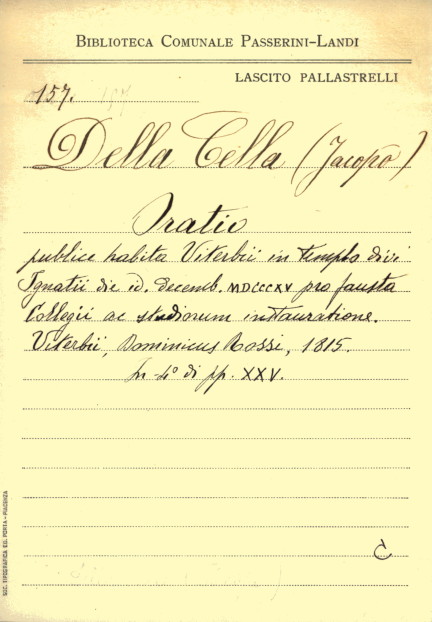 BIBLIOTECA COMUNALE PASSERINI-LANDI
LASCITO PALLASTRELLI
157.
Della Cella (Jacopo)
Oratio
publice habita Viterbii in templo divi
Ignatii die id. decemb. MDCCCXV pro fausta
Collegii ac studiorum instauratione.
Viterbii, Dominicus Rossi, 1815.
In-4° di pp. XXV.
C
SOC. TIPOGRAFICA ED. PORTA - PIACENZA